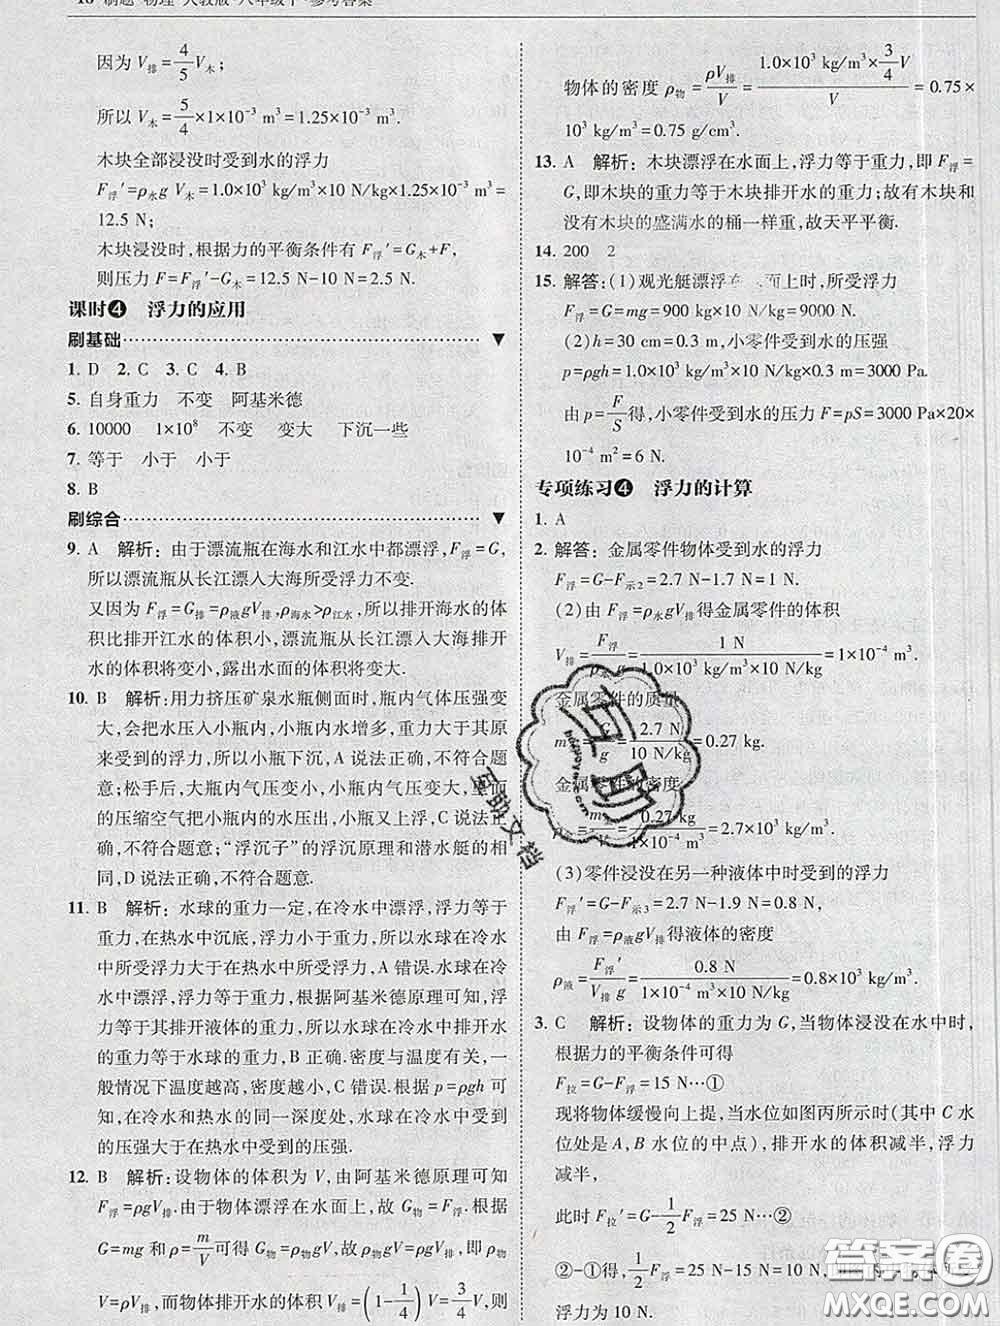 因为 V排=4/5 V木;
所以 V木=5/4×1×10⁻³ m³=1.25×10⁻³ m³.
木块全部浸没时受到水的浮力
F浮′=ρ水g V木=1.0×10³ kg/m³×10 N/kg×1.25×10⁻³ m³=
12.5 N;
木块浸没时,根据力的平衡条件有 F浮′=G木+F,
则压力 F=F浮′-G木=12.5 N-10 N=2.5 N.
课时❹ 浮力的应用
刷基础
1. D 2. C 3. C 4. B
5. 自身重力 不变 阿基米德
6. 10000 1×10⁸ 不变 变大 下沉一些
7. 等于 小于 小于
8. B
刷综合
9. A 解析:由于漂流瓶在海水和江水中都漂浮,F浮=G,
所以漂流瓶从长江漂入大海所受浮力不变.
又因为 F浮=G排=ρ液gV排,ρ海水>ρ江水,所以排开海水的体
积比排开江水的体积小,漂流瓶从长江漂入大海排开
水的体积将变小,露出水面的体积将变大.
10. B 解析:用力挤压矿泉水瓶侧面时,瓶内气体压强变
大,会把水压入小瓶内,小瓶内水增多,重力大于其原来
受到的浮力,所以小瓶下沉,A说法正确,不符合题
意;松手后,大瓶内气压变小,小瓶内气压大于大瓶内气压,小瓶内
的压缩空气把小瓶内的水压出,小瓶又上浮,C说法正
确,不符合题意;“浮沉子”的浮沉原理和潜水艇的相
同,D说法正确,不符合题意.
11. B 解析:水球的重力一定,在冷水中漂浮,浮力等于
重力,在热水中沉底,浮力小于重力,所以水球在冷水
中所受浮力大于在热水中所受浮力,A错误.水球在冷
水中漂浮,浮力等于重力,根据阿基米德原理可知,浮
力等于其排开液体的重力,所以水球在冷水中排开水
的重力等于水球的重力,B正确.密度与温度有关,一
般情况下温度越高,密度越小,C错误.根据 p=ρgh 可
知,在冷水和热水的同一深度处,水球在冷水中受到
的压强大于在热水中受到的压强.
12. B 解析:设物体的体积为 V,由阿基米德原理可知
F浮=ρgV排.由于物体漂浮在水面上,故 G物=F浮.根据
G=mg 和 ρ=m/V 可得 G物=ρ物gV,故 ρ物gV=ρgV排,ρ物
V=ρV排,而物体排开水的体积 V排=(1-1/4)V=3/4 V,则
物体的密度 ρ物=ρV排/V=1.0×10³ kg/m³×3/4 V/V=0.75×
10³ kg/m³=0.75 g/cm³.
13. A 解析:木块漂浮在水面上,浮力等于重力,即 F浮=
G,即木块的重力等于木块排开水的重力;故有木块和
没有木块的盛满水的桶一样重,故天平平衡.
14. 200 2
15. 解答:(1)观光艇漂浮在水面上时,所受浮力
F浮=G=mg=900 kg×10 N/kg=9000 N.
(2)h=30 cm=0.3 m,小零件受到水的压强
p=ρgh=1.0×10³ kg/m³×10 N/kg×0.3 m=3000 Pa.
由 p=F/S 得,小零件受到水的压力 F=pS=3000 Pa×20×
10⁻⁴ m²=6 N.
专项练习❹ 浮力的计算
1. A
2. 解答:金属零件物体受到水的浮力
F浮=G-F示2=2.7 N-1.7 N=1 N.
(2)由 F浮=ρ水gV排得金属零件的体积
V排=F浮/ρ水g=1 N/1.0×10³ kg/m³×10 N/kg=1×10⁻⁴ m³
金属零件的质量
m=G/g=2.7 N/10 N/kg=0.27 kg.
金属零件的密度
ρ=m/V=0.27 kg/1×10⁻⁴ m³=2.7×10³ kg/m³.
(3)零件浸没在另一种液体中时受到的浮力
F浮′=G-F示3=2.7 N-1.9 N=0.8 N,
由 F浮=ρ液gV排得液体的密度
ρ液=F浮′/V排 g=0.8 N/1×10⁻⁴ m³×10 N/kg=0.8×10³ kg/m³.
3. C 解析:设物体的重力为 G,当物体浸没在水中时,
根据力的平衡条件可得
F拉=G-F浮=15 N…①
现将物体缓慢向上提,当水位如图丙所示时(其中 C 水
位处是 A,B 水位的中点),排开水的体积减半,浮力
减半,
此时 F拉′=G-1/2 F浮=25 N…②
②-①得,1/2 F浮=25 N-15 N=10 N,
浮力为 10 N.
互助文档
答案卷
MXQE.COM